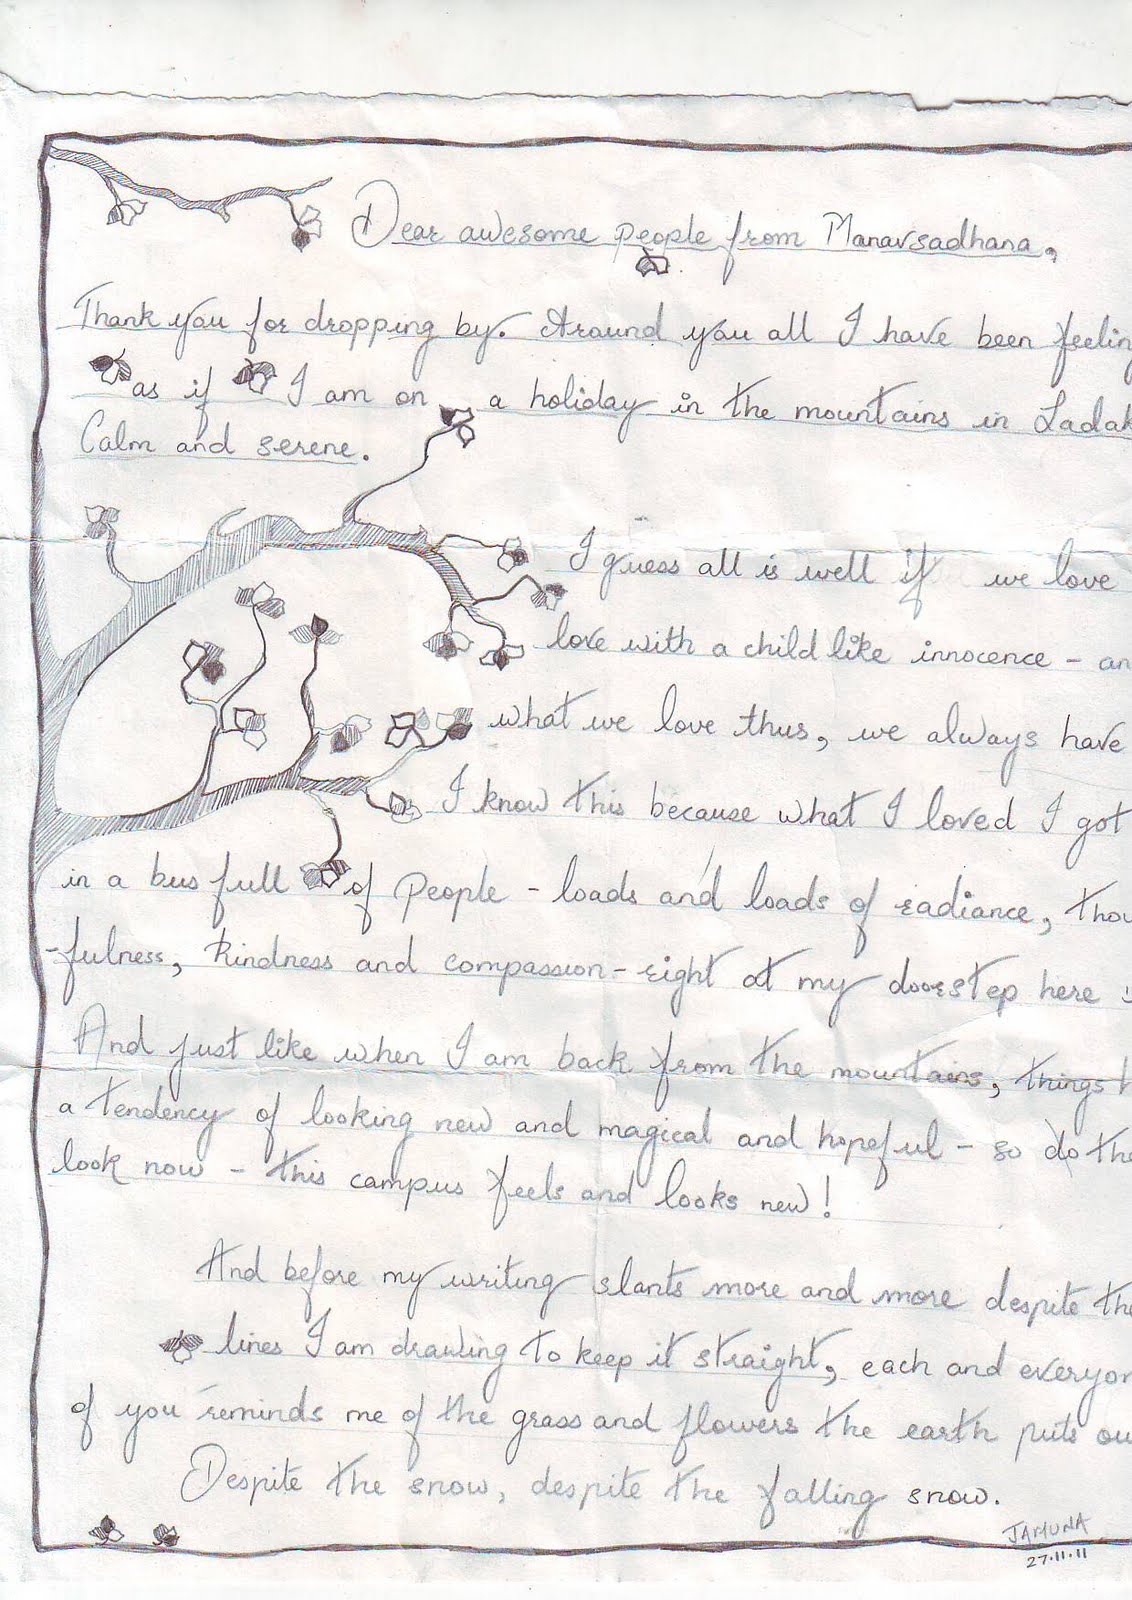 Dear awesome people from Manavsadhana,
Thank you for dropping by. Around you all I have been feelin
as if I am on a holiday in the mountains in Ladak
Calm and serene.
I guess all is well if we love
love with a child like innocence - an
what we love thus, we always have
I know this because what I loved I got
in a bus full of people - loads and loads of radiance, thou
-fulness, kindness and compassion - right at my doorstep here
And just like when I am back from the mountains, things h
a tendency of looking new and magical and hopeful - so do the
look now - this campus feels and looks new!
And before my writing slants more and more despite the
lines I am drawing to keep it straight, each and everyon
of you reminds me of the grass and flowers the earth puts ou
Despite the snow, despite the falling snow.
JAMUNA
27.11.11